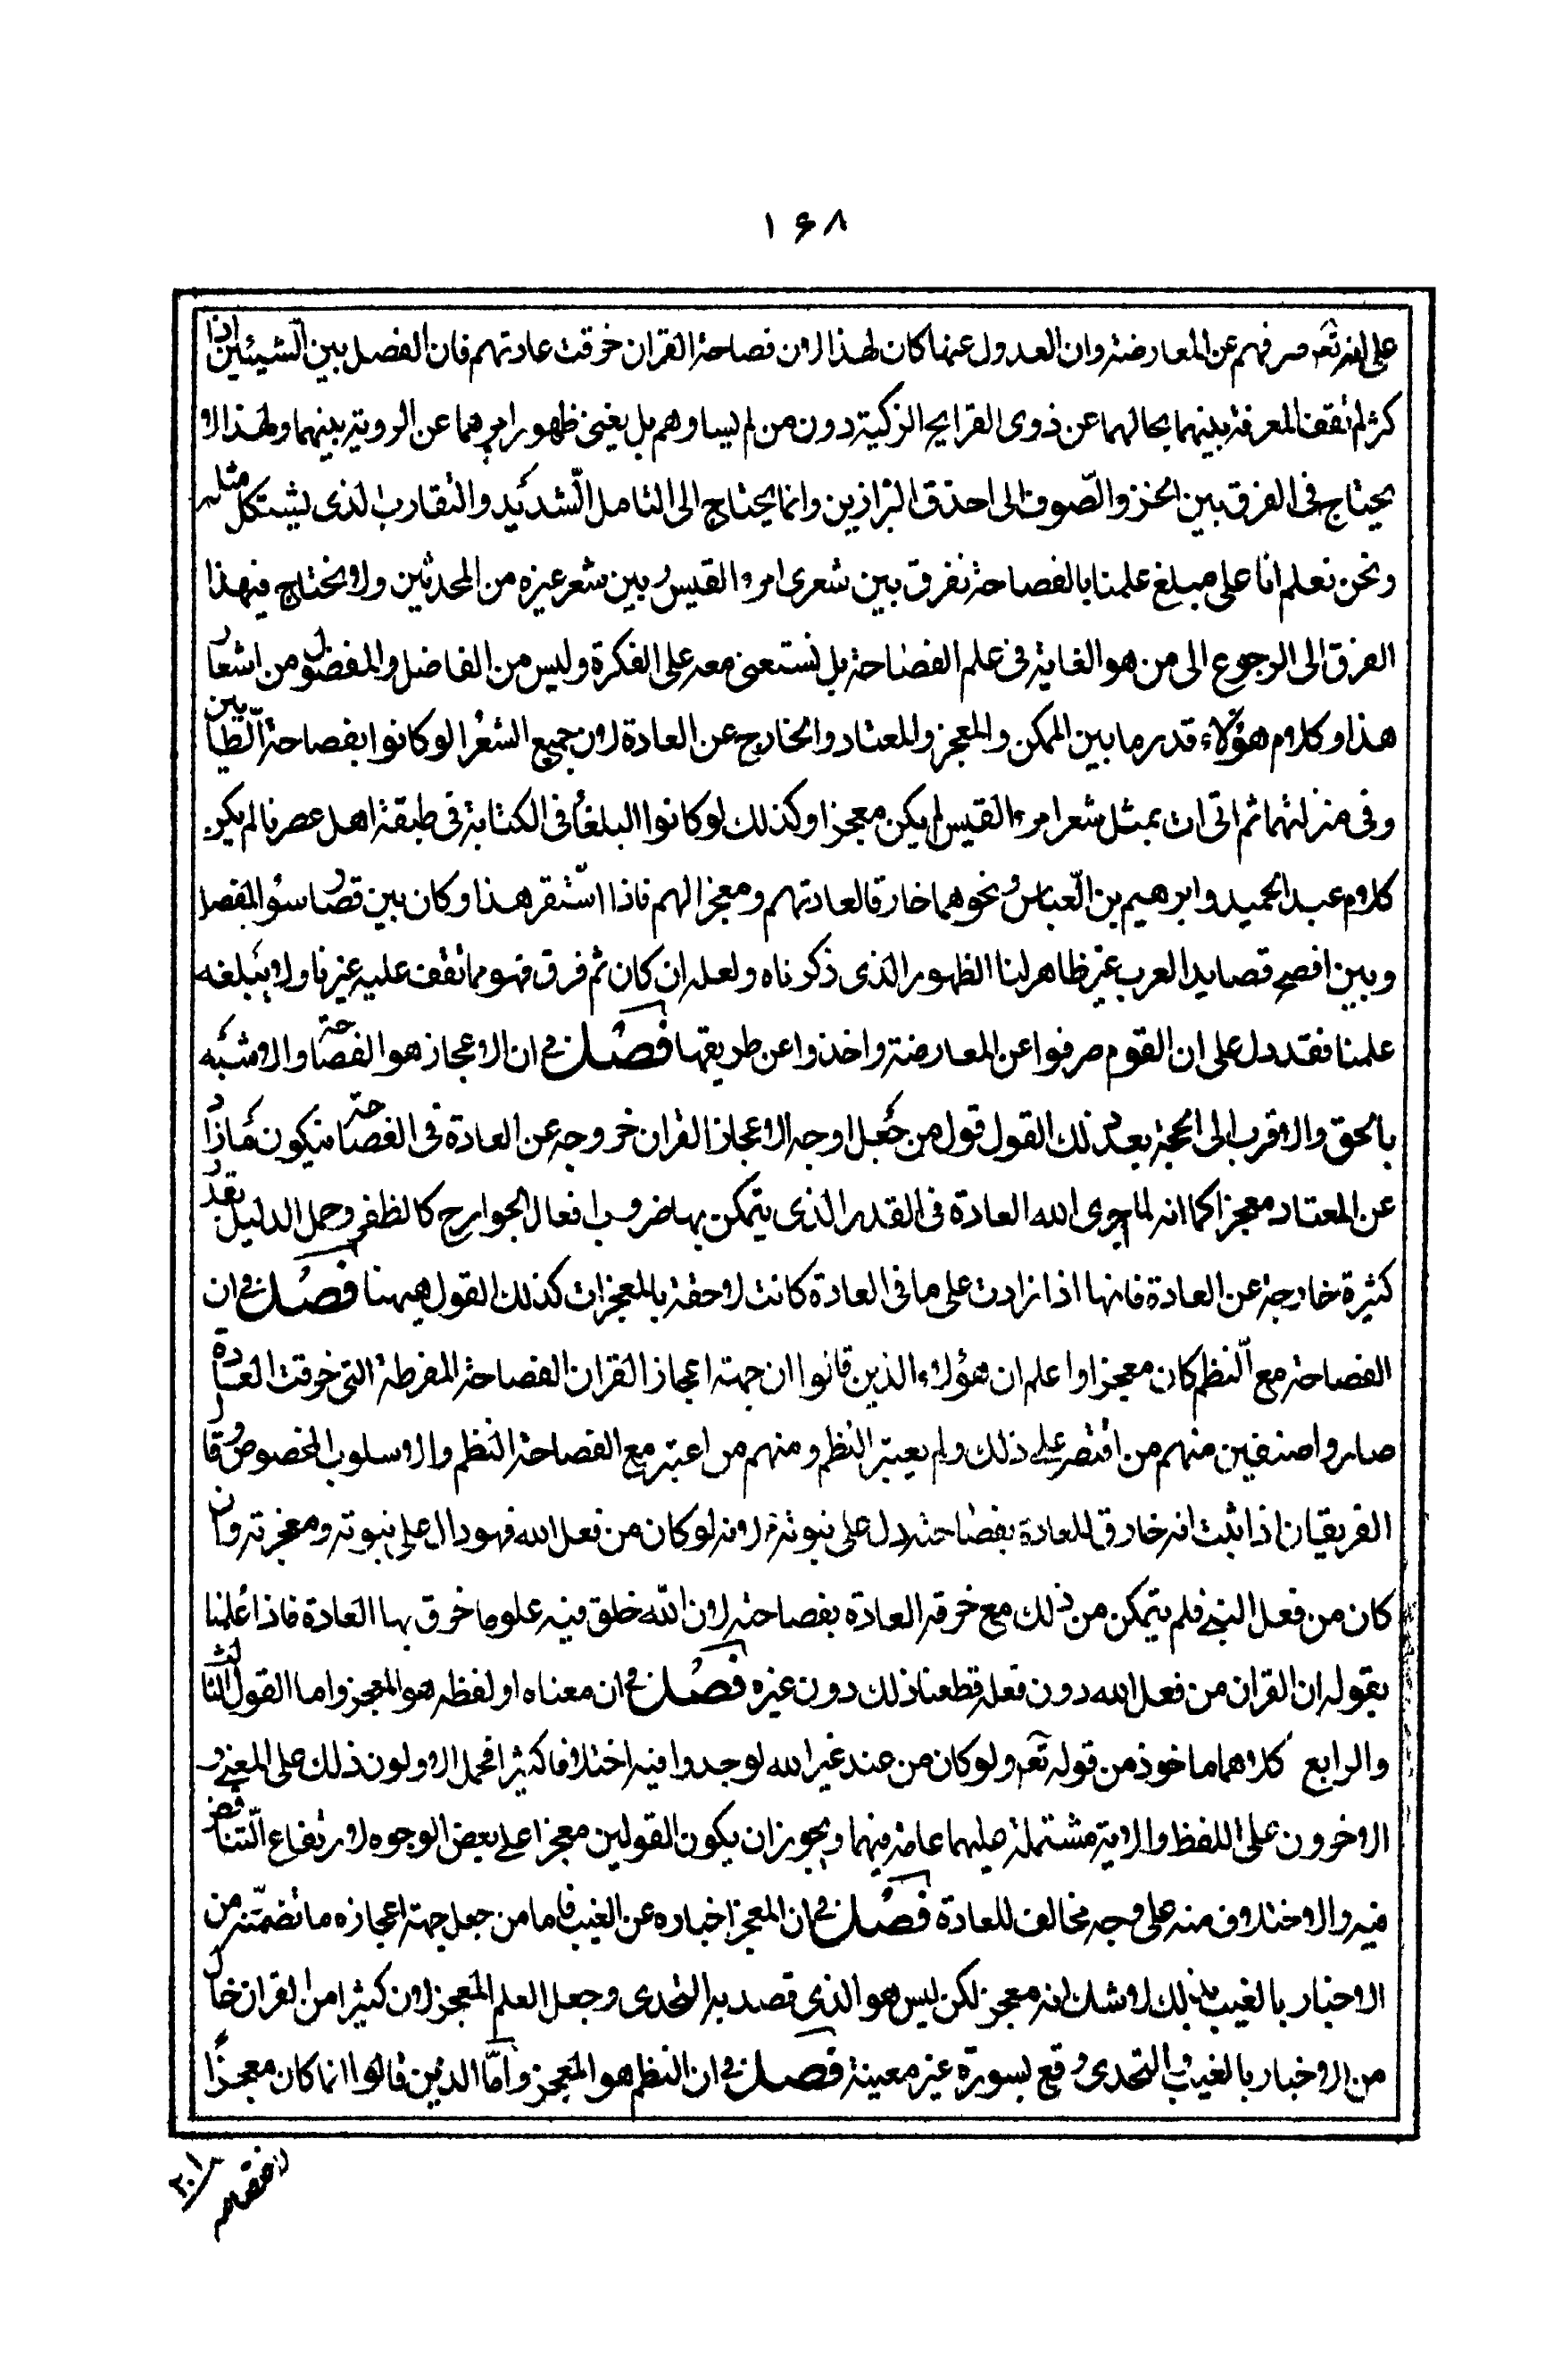 ۱۶۸
على انه تعم صرفهم عن المعارضة وان العدول عنها كان لهذا لان فصاحة القران خرقت عادتهم فان الفصل بين الشيئين اذا
كثر لم تقف المعرفة بينهما بحالهما عن ذوى القرايح الزكية دون من لم يساوهم بل يغنى ظهور امرهما عن الروية بينهما ولهذا لا
يحتاج فى الفرق بين الخز والصّوف الى احذق البزازين وانما يحتاج الى التامل الشديد والتقارب الذى يشتكل مثله
ونحن نعلم انا على مبلغ علمنا بالفصاحة نفرق بين شعرى امرء القيس وبين شعر غيره من المحدثين ولا نحتاج فى هذا
الفرق الى الرجوع الى من هو الغاية فى علم الفصاحة بل نستغنى معه على الفكرة وليس من الفاضل والمفضول من اشعار
هذا وكلام هؤلاء قدر ما بين الممكن والمعجز والمعتاد والخارج عن العادة لان جميع الشعرا لو كانوا بفصاحة الطايين
وفى منزلتهما ثم اتى ات بمثل شعر امرء القيس لم يكن معجزا وكذلك لو كانوا البلغا فى الكتابة فى طبقة اهل عصرنا لم يكن
كلام عبد الحميد وابرهيم بن العباس ونحوهما خارقا لعادتهم ومعجزا لهم فاذا استقر هذا وكان بين قصار سور المفصل
وبين افصح قصايد العرب غير ظاهر لنا الظهور الذى ذكرناه ولعله ان كان ثم فرق فهو مما تقف عليه غيرنا ولا يبلغه
علمنا فقد دل على ان القوم صرفوا عن المعارضة واخذوا عن طريقها فصل فى ان الاعجاز هو الفصاحة والاشبه
بالحق والاقرب الى الحجة بعد ذلك القول قول من جعل وجه الاعجاز القران خروجه عن العادة فى الفصاحة فيكون ما زاد
عن المعتاد معجزا كما انه لما اجرى الله العادة فى القدر الذى يتمكن بها ضروب افعال الجوارح كالظفر وحمل الدليل بقدر
كثيرة خارجة عن العادة فانها اذا زادت على ما فى العادة كانت لاحقة بالمعجزات كذلك القول ههنا فصل فى ان
الفصاحة مع النظم كان معجزا واعلم ان هؤلاء الذين قالوا ان جهة اعجاز القران الفصاحة المفرطة التى خرقت العادة
صاروا صنفين منهم من اقتصر على ذلك ولم يعتبر النظم ومنهم من اعتبر مع الفصاحة النظم والاسلوب المخصوص وقال
الفريقان اذا ثبت انه خارق للعادة بفصاحته دل على نبوته لانه لو كان من فعل الله فهو دال على نبوته ومعجزته وان
كان من فعل النبى فلم يتمكن من ذلك مع خرقه العادة بفصاحته لان الله خلق فيه علوما خرق بها العادة فاذا علمنا
بقوله ان القران من فعل الله دون فعله قطعنا ذلك دون غيره فصل فى ان معناه او لفظه هو المعجز واما القول الثالث
والرابع كلاهما ماخوذ من قوله تعم ولو كان من عند غير الله لوجدوا فيه اختلافا كثيرا فحمل الاولون ذلك على المعنى و
الاخرون على اللفظ والاية مشتملة عليهما عامة فيهما ويجوز ان يكون القولين معجزا على بعض الوجوه لارتفاع التناقض
فيه والاختلاف منه على وجه مخالف للعادة فصل فى ان المعجز اخباره عن الغيب فاما من جعل جهة اعجازه ما تضمنه من
الاخبار بالغيب ذلك لا شك انه معجز لكن ليس هو الذى قصد به التحدى وجعل العلم المعجز لان كثيرا من القران خال
من الاخبار بالغيب والتحدى وقع بسورة غير معينة فصل فى ان النظم هو المعجز وامّا الذين قالوا انما كان معجزًا